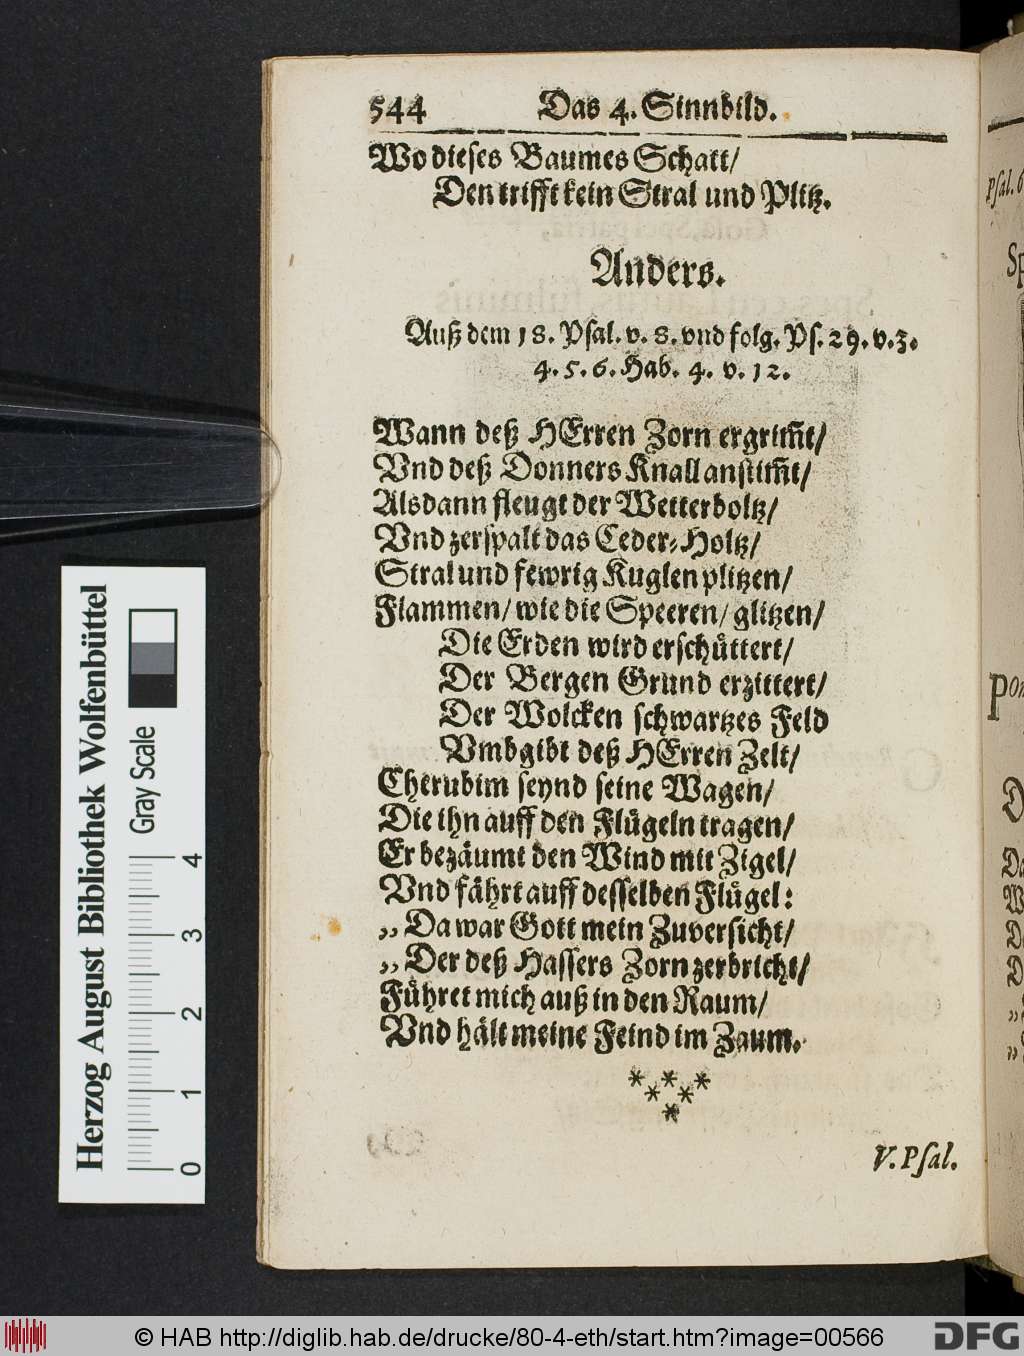 544 Das 4. Sinnbild.
Wo dieses Baumes Schatt/
Den trifft kein Stral und Plitz.
Anders.
Auß dem 18. Psal. v. 8. vnd folg. Ps. 29. v. 3.
4. 5. 6. Hab. 4. v. 12.
Wann deß HErren Zorn ergrim̃t/
Vnd deß Donners Knall anstim̃t/
Alsdann fleugt der Wetterboltz/
Vnd zerspalt das Ceder-Holtz/
Stral und fewrig Kuglen plitzen/
Flammen/ wie die Speeren/ glitzen/
Die Erden wird erschüttert/
Der Bergen Grund erzittert/
Der Wolcken schwartzes Feld
Vmbgibt deß HErren Zelt/
Cherubim seynd seine Wagen/
Die ihn auff den Flügeln tragen/
Er bezäumt den Wind mit Zigel/
Vnd fährt auff desselben Flügel:
„Da war Gott mein Zuversicht/
„Der deß Hassers Zorn zerbricht/
Führet mich auß in den Raum/
Vnd hält meine Feind im Zaum.
* * *
* *
*
V. Psal.
Psal. 6
Sp
Pon
D
Da
W
D
D
„
„
Herzog August Bibliothek Wolfenbüttel
Gray Scale
0 1 2 3 4
© HAB http://diglib.hab.de/drucke/80-4-eth/start.htm?image=00566
DFG